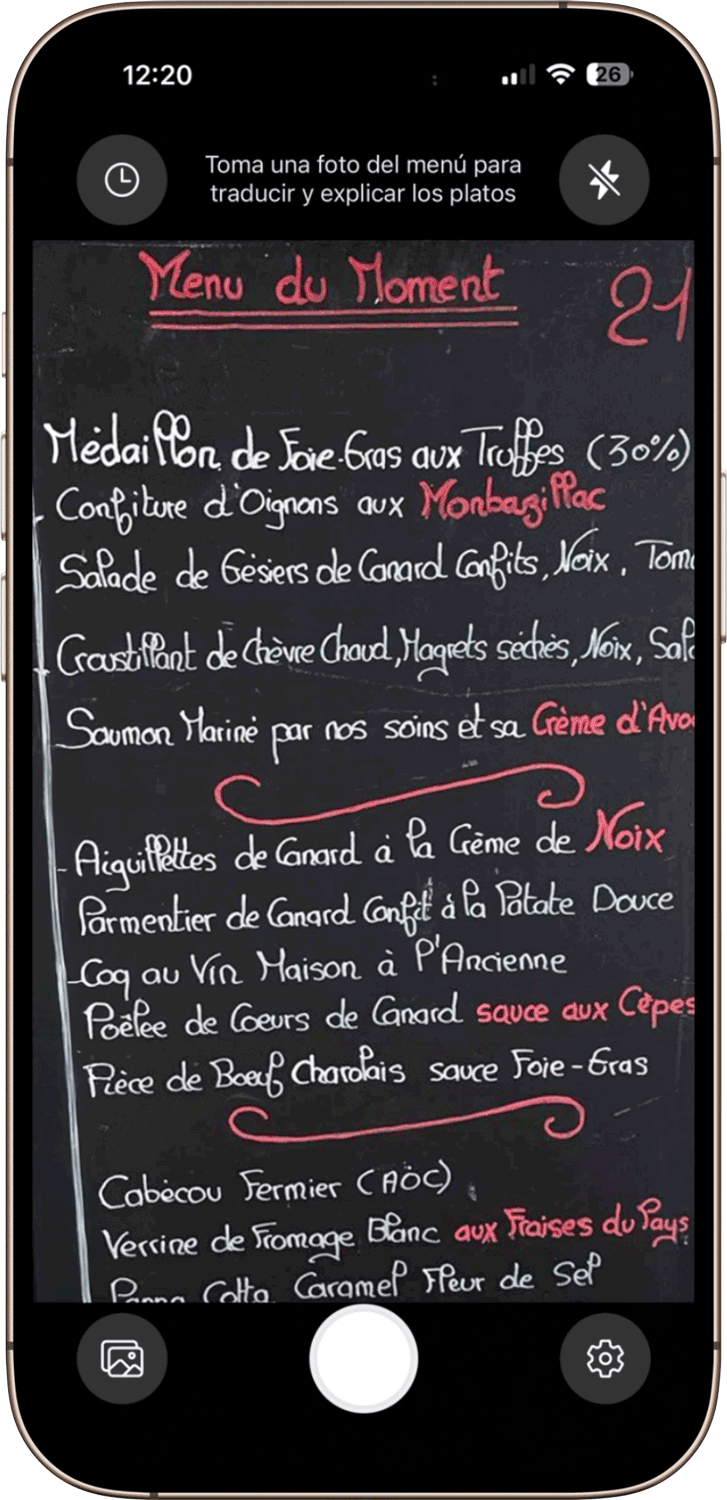 12:20
26
Toma una foto del menú para
traducir y explicar los platos
Menu du Moment
21
Médaillon de Foie-Gras aux Truffes (30%)
Confiture d'Oignons aux Monbazillac
Salade de Gésiers de Canard Confits, Noix, Toma
Croustillant de chèvre Chaud, Magrets séchés, Noix, Sala
Saumon Mariné par nos soins et sa Crème d'Avoc
- Aiguillettes de Canard à la Crème de Noix
Parmentier de Canard Confit à la Patate Douce
- Coq au Vin Maison à l'Ancienne
Poêlée de Coeurs de Canard sauce aux Cèpes
Pièce de Boeuf Charolais sauce Foie-Gras
Cabécou Fermier (AOC)
Verrine de Fromage Blanc aux Fraises du Pays
Panna Cotta Caramel Fleur de Sel